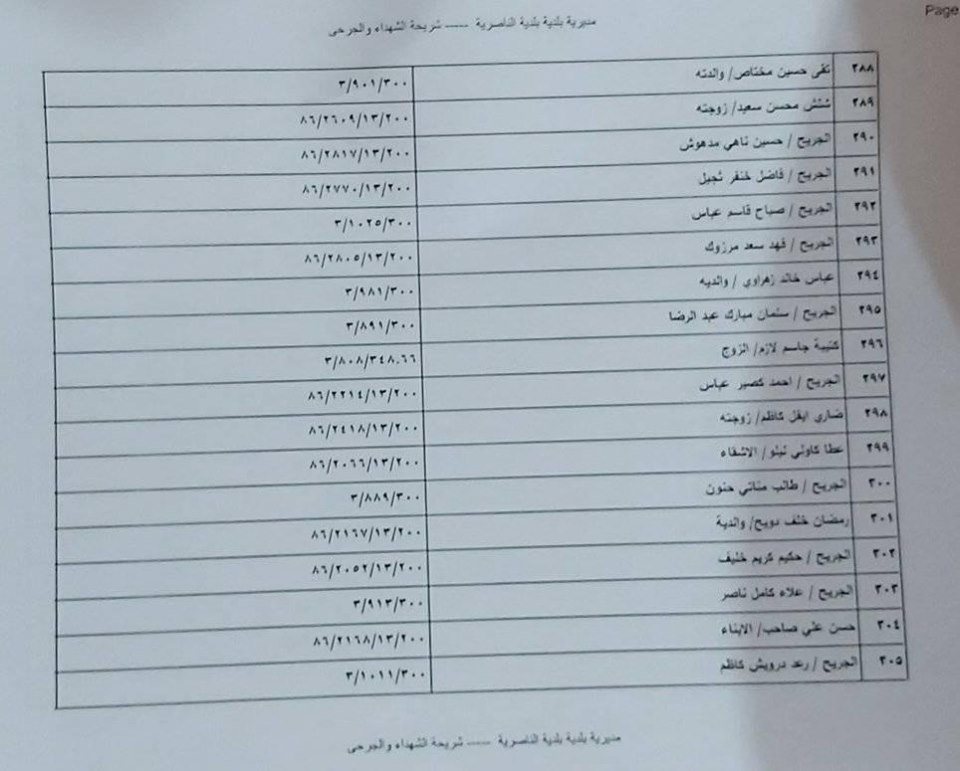 Page
مديرية بلدية بلدية الناصرية ----- شريحة الشهداء والجرحى
٢٨٨ تقى حسين مختاص/ والدته ٣/٩٠١/٣٠٠
٢٨٩ شنش محسن سعيد/ زوجته ٨٦/٢٦٠٩/١٣/٢٠٠
٢٩٠ الجريح / حسين ناهي مدهوش ٨٦/٢٨١٧/١٣/٢٠٠
٢٩١ الجريح / فاضل خنفر ثجيل ٨٦/٢٧٧٠/١٣/٢٠٠
٢٩٢ الجريح / صباح قاسم عباس ٣/١٠٢٥/٣٠٠
٢٩٣ الجريح / فهد سعد مرزوك ٨٦/٢٨٠٥/١٣/٢٠٠
٢٩٤ عباس خالد زهراوي / والديه ٣/٩٨١/٣٠٠
٢٩٥ الجريح / سلمان مبارك عبد الرضا ٣/٨٩١/٣٠٠
٢٩٦ كتيبة جاسم لازم/ الزوج ٣/٨٠٨/٣٤٨.٦٦
٢٩٧ الجريح / احمد كصير عباس ٨٦/٢٢١٤/١٣/٢٠٠
٢٩٨ ضاري ايفل كاظم/ زوجته ٨٦/٢٤١٨/١٣/٢٠٠
٢٩٩ عطا كاولي نيلو/ الاشقاء ٨٦/٢٠٦٦/١٣/٢٠٠
٣٠٠ الجريح / طالب مناتي حنون ٣/٨٨٩/٣٠٠
٣٠١ رمضان خلف دويح/ والدية ٨٦/٢١٦٧/١٣/٢٠٠
٣٠٢ الجريح / حكيم كريم خليف ٨٦/٢٠٥٢/١٣/٢٠٠
٣٠٣ الجريح / علاء كامل ناصر ٣/٩١٣/٣٠٠
٣٠٤ حسن علي صاحب/ الابناء ٨٦/٢١٦٨/١٣/٢٠٠
٣٠٥ الجريح / رعد درويش كاظم ٣/١٠١١/٣٠٠
مديرية بلدية بلدية الناصرية ----- شريحة الشهداء والجرحى